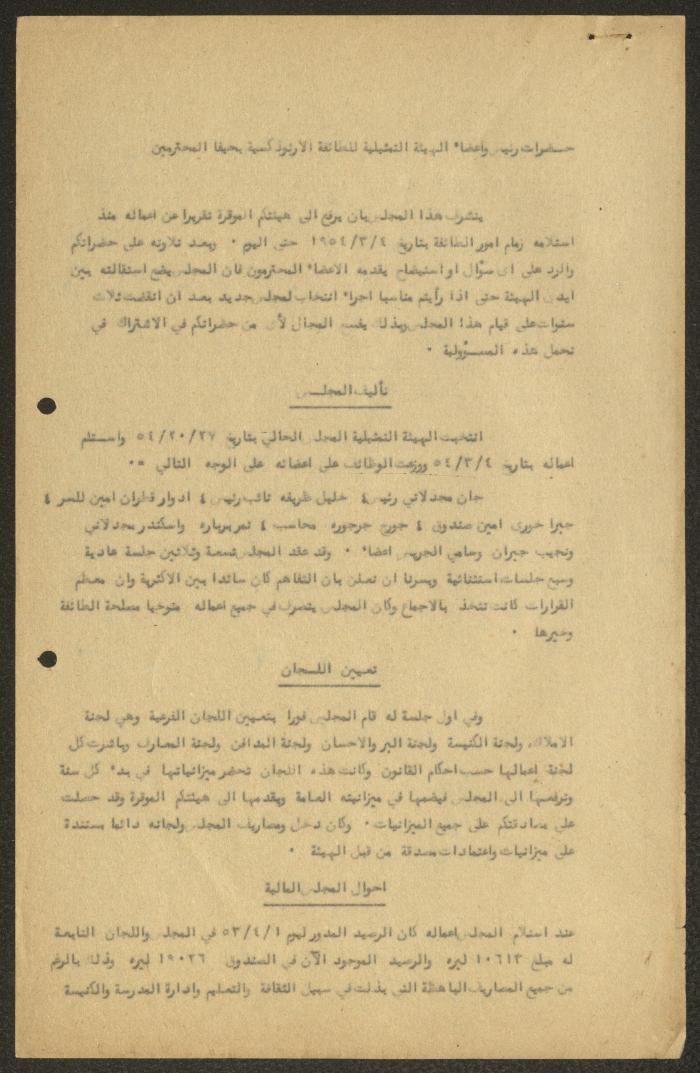 حضرات رئيس واعضاء الهيئة التمثيلية للطائفة الارثوذكسية بحيفا المحترمين
يتشرف هذا المجلس بان يرفع الى هيئتكم الموقرة تقريرا عن اعماله منذ
استلامه زمام امور الطائفة بتاريخ ١٩٥٤/٣/٤ حتى اليوم . وبعد تلاوته على حضراتكم
والرد على اى سؤال او استيضاح يقدمه الاعضاء المحترمون فان المجلس يضع استقالته بين
ايدى الهيئة حتى اذا رأيتم مناسبا اجراء انتخاب لمجلس جديد بعد ان انقضت ثلاث
سنوات على قيام هذا المجلس وبذلك يفسح المجال لأى من حضراتكم في الاشتراك في
تحمل هذه المسؤولية .
تأليف المجلس
انتخبت الهيئة التمثيلية المجلس الحالي بتاريخ ٥٤/٢٠/٢٧ واستلم
اعماله بتاريخ ٥٤/٣/٤ ووزعت الوظائف على اعضائه على الوجه التالي :-
جان مجدلاني رئيس ٤ خليل ظريفه نائب رئيس ٤ ادوار قطران امين للسر ٤
جبرا خورى امين صندوق ٤ جورج جرجوره محاسب ٤ نمر برباره واسكندر مجدلاني
ونجيب جبران وسامي الجريس اعضاء . وقد عقد المجلس تسعة وثلاثين جلسة عادية
وسبع جلسات استثنائية ويسرنا ان نعلن بان التفاهم كان سائدا بين الاكثرية وان معظم
القرارات كانت تتخذ بالاجماع وكان المجلس يتصرف في جميع اعماله متوخيا مصلحة الطائفة
وخيرها .
تعيين اللجان
وفي اول جلسة له قام المجلس فورا بتعيين اللجان الفرعية وهي لجنة
الاملاك ولجنة الكنيسة ولجنة البر والاحسان ولجنة المدافن ولجنة المعارف وباشرت كل
لجنة اعمالها حسب احكام القانون وكانت هذه اللجان تحضر ميزانياتها في بدء كل سنة
وترفعها الى المجلس فيضمها في ميزانيته العامة ويقدمها الى هيئتكم الموقرة وقد حصلت
على مصادقتكم على جميع الميزانيات . وكان دخل ومصاريف المجلس ولجانه دائما مستندة
على ميزانيات واعتمادات مصدقة من قبل الهيئة .
احوال المجلس المالية
عند استلام المجلس اعماله كان الرصيد المدور ليوم ٥٣/٤/١ في المجلس واللجان التابعة
له مبلغ ١٠٦١٣ ليره والرصيد الموجود الآن في الصندوق ١٩٠٢٦ ليره وذلك بالرغم
من جميع المصاريف الباهظة التي بذلت في سبيل الثقافة والتعليم وادارة المدرسة والكنيسة